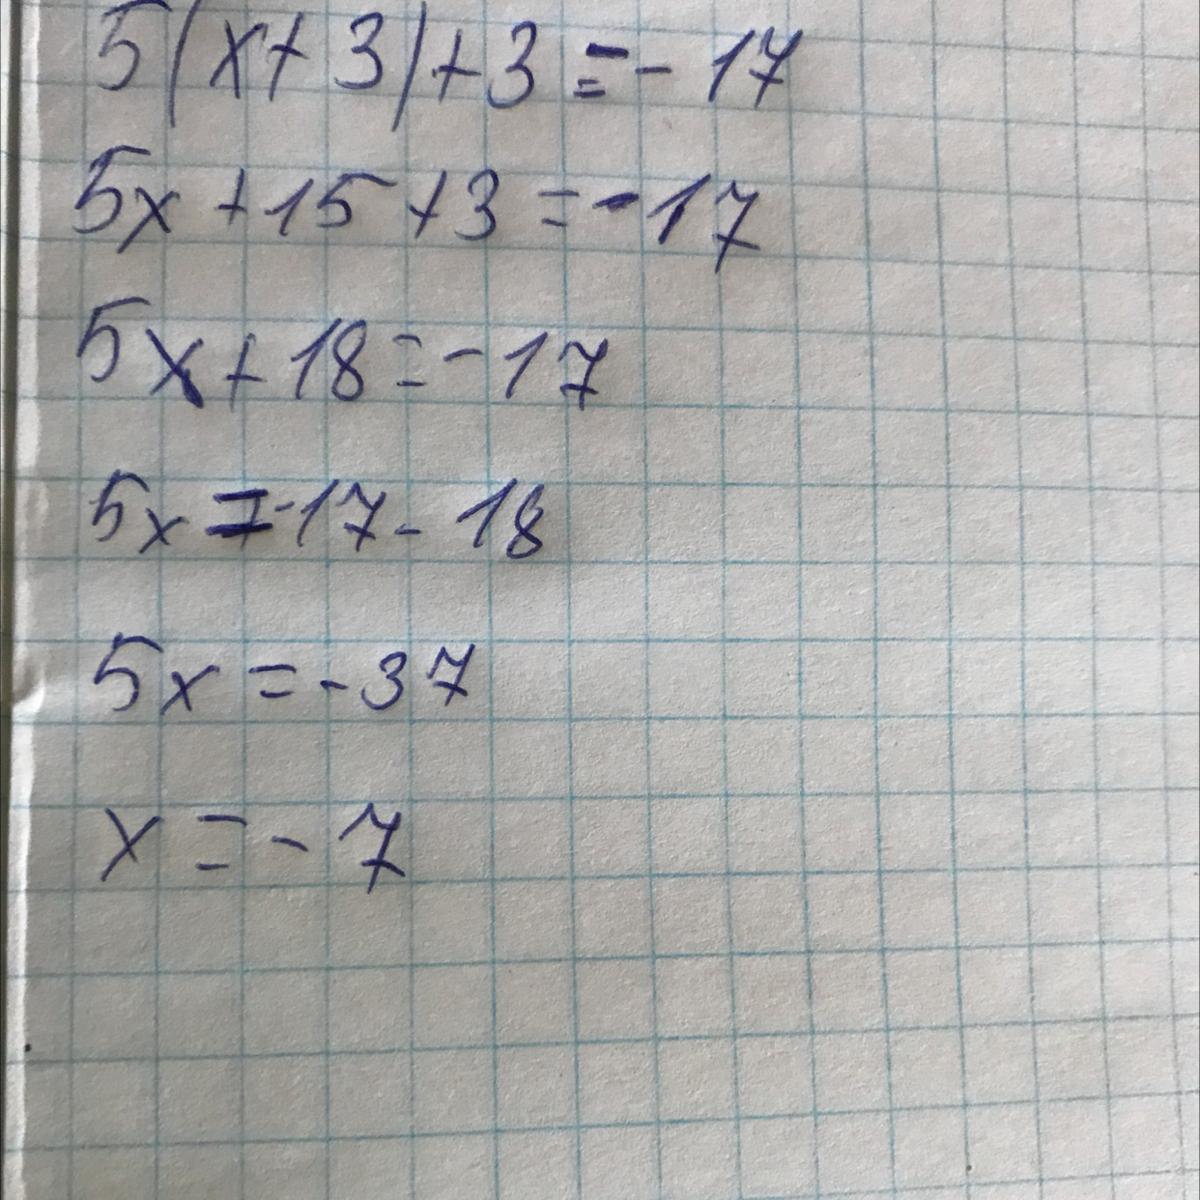 5(x+3)+3=-17
5x+15+3=-17
5x+18=-17
5x=-17-18
5x=-37
x=-7